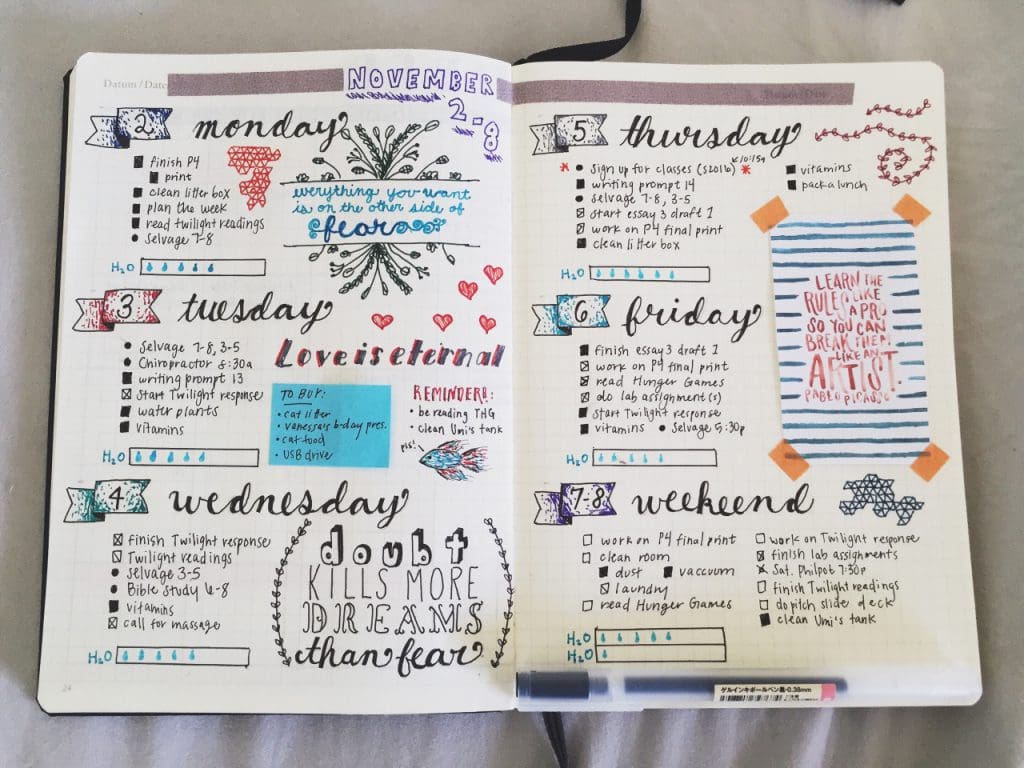 Datum / Date
NOVEMBER
2-8
2 monday
finish P4
print
clean litter box
plan the week
read twilight readings
Selvage 7-8
H2O
everything you want
is on the other side of
fear
3 tuesday
Selvage 7-8, 3-5
Chiropractor 8:30a
writing prompt 13
Start Twilight response
water plants
vitamins
H2O
Love is eternal
TO BUY:
cat litter
vanessa's b-day pres.
cat food
USB drive
REMINDER!:
be reading THG
clean Umi's tank
pss!
4 wednesday
finish Twilight response
Twilight readings
Selvage 3-5
Bible Study 6-8
vitamins
call for massage
H2O
doubt
KILLS MORE
DREAMS
than fear
24
5 thursday
Sign up for classes (S2016) 10:15a
writing prompt 14
Selvage 7-8, 3-5
Start essay 3 draft 1
work on P4 final print
clean litter box
vitamins
pack a lunch
H2O
6 friday
finish essay 3 draft 1
work on P4 final print
read Hunger Games
do lab assignment(s)
start Twilight response
vitamins
Selvage 5:30p
H2O
LEARN THE
RULES LIKE
A PRO
SO YOU CAN
BREAK THEM
LIKE AN
ARTIST.
PABLO PICASSO
7-8 weekeend
work on P4 final print
clean room
dust
vaccuum
laundry
read Hunger Games
work on Twilight response
finish lab assignments
Sat. Philpot 7:30p
finish Twilight readings
do pitch slide deck
clean Umi's tank
H2O
H2O
ゲルインキボールペン黒・0.38mm